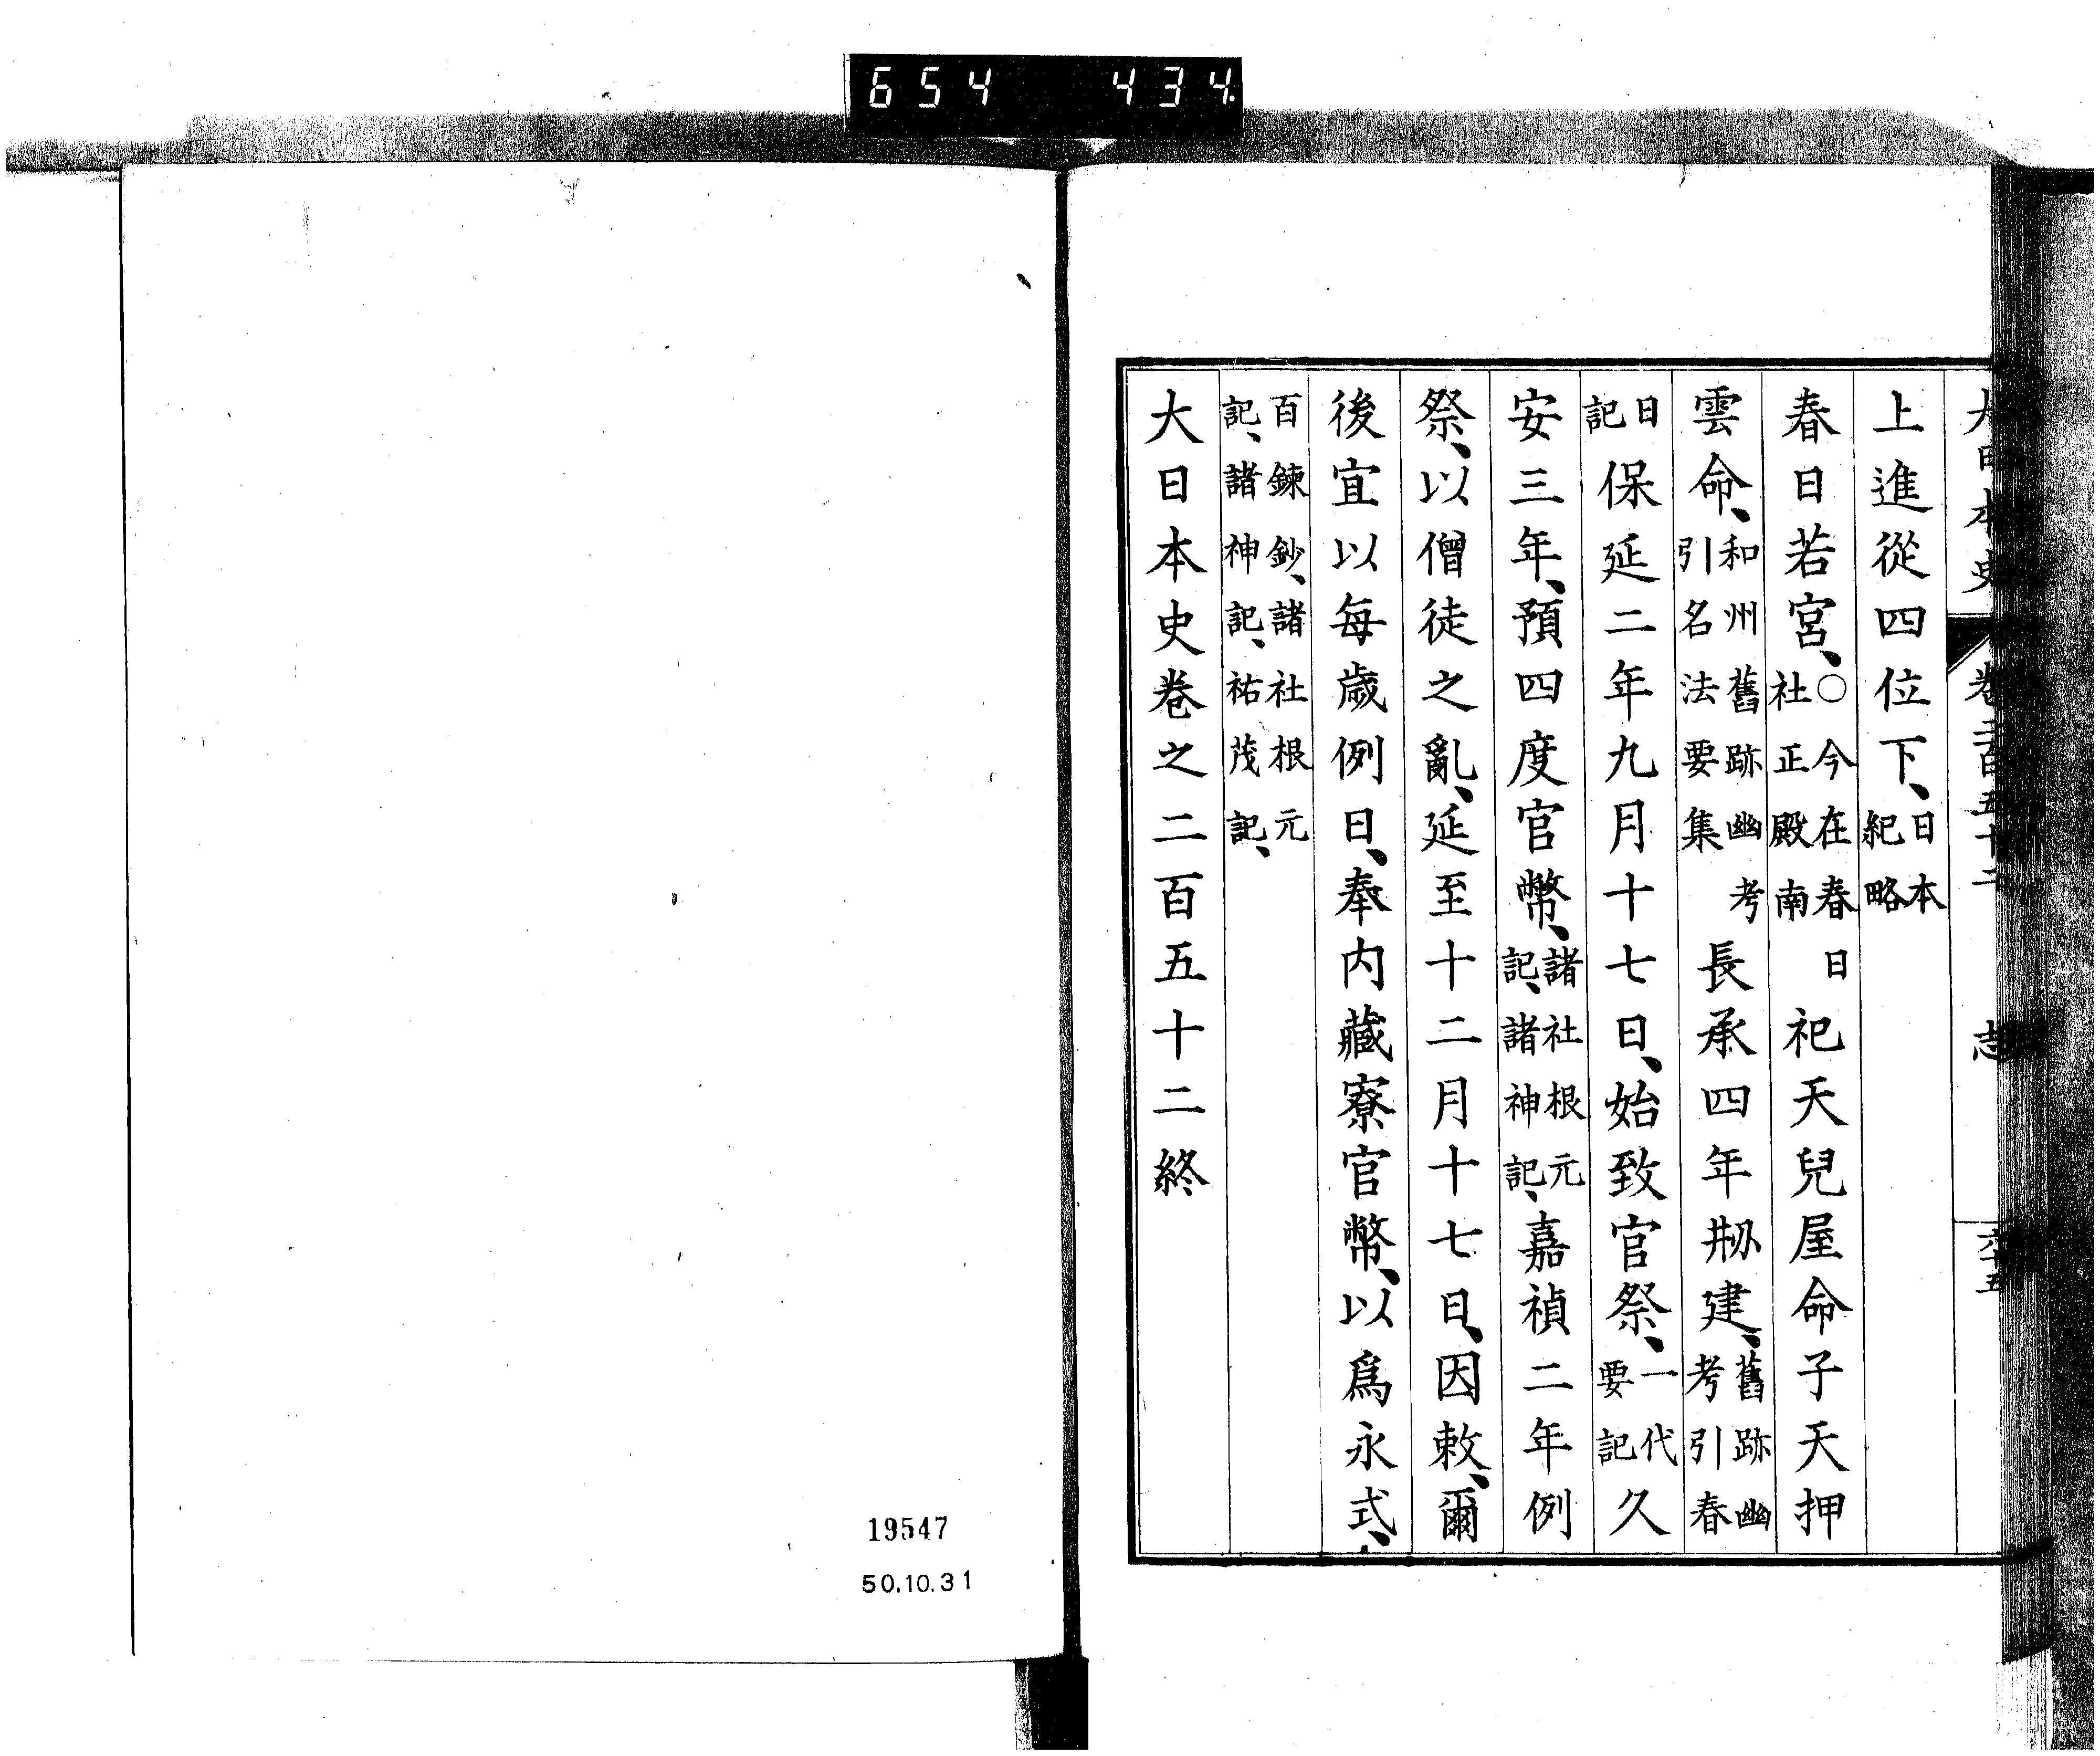 654 434
大日本史 卷二百五十二 志 六十五
上進從四位下、日本紀略
春日若宮、○今在春日社正殿南祀天兒屋命子天押
雲命、和州舊跡幽考引名法要集長承四年剏建、舊跡幽考引春
日記保延二年九月十七日、始致官祭、一代要記久
安三年、預四度官幣、諸社根元記、諸神記、嘉禎二年例
祭、以僧徒之亂、延至十二月十七日、因敕、爾
後宜以每歲例日、奉內藏寮官幣、以爲永式、
百鍊鈔、諸社根元記、諸神記、祐茂記、
大日本史卷之二百五十二終
19547
50.10.31